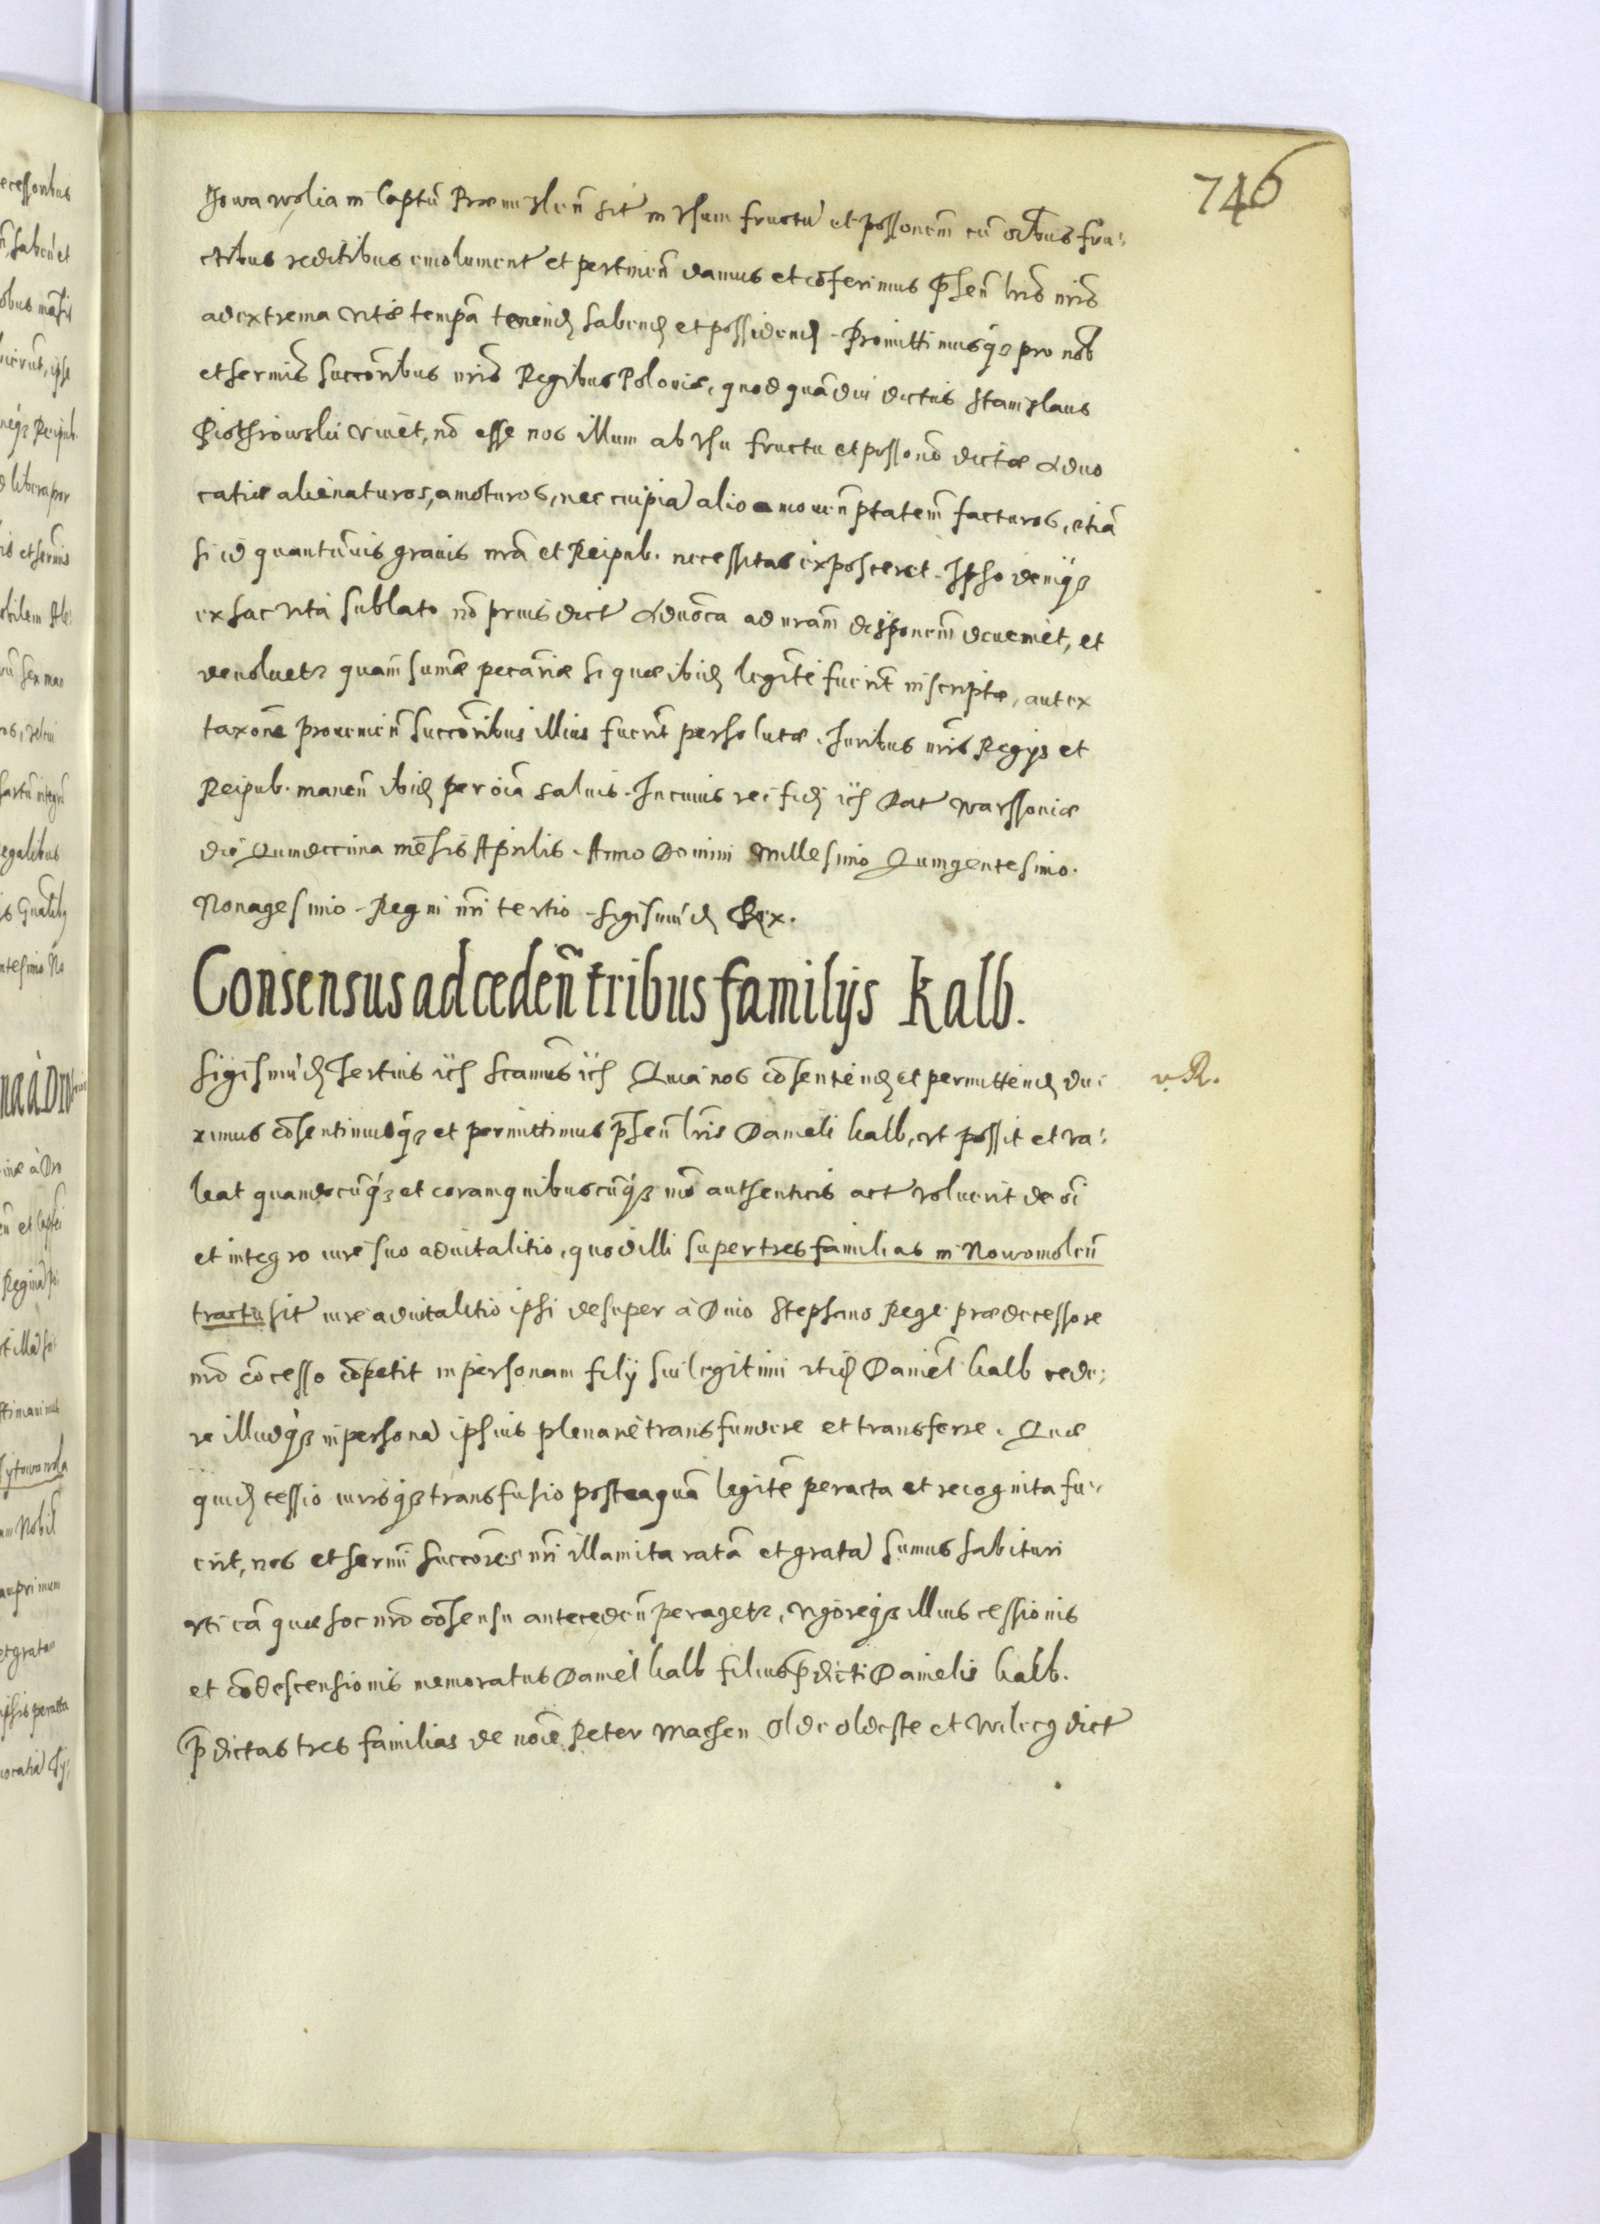 746
Nowa wolia in Captũ Præmislien̄ sit in vsum fructũ et possoném cũ oĩbus fru-
ctibus reditibus emolument et pertinen̄ damus et cõferimus p̃sen̄ lr̃is nr̃is
ad extrema vitæ tempa tenend habend et possidend. Promittimusq̃ pro nob
et sermis succoribus nr̃is Regibus Poloniæ, quod quãdiu dictus Stanislaus
Piothrowskii viuet, nõ esse nos illum ab vsu fructu et possone dictæ aduo
catiæ alienaturos, amoturos, nec cuipiã alio amouen̄ ptatem facturos, etiã
si id quantũuis grauis nr̃a et Reipub. necessitas exposceret. Ipso deniq̃
ex hac vita sublato nõ prius dict aduoca ad nr̃am disponem deueniet, et
deuoluetr quam sumæ pecariæ si quæ ibid legitẽ fuerint inscriptæ, aut ex
taxone prouenien̄ succoribus illius fuerit persolutæ. Iuribus nr̃is Regijs et
Reipub. manen̄ ibid per oĩa saluis. In cuius rei fid ic̃h Dat Warssouiæ
die Quindecima mẽsis Aprilis. Anno Domini Millesimo Quingentesimo.
Nonagesimo. Regni nr̃i tertio. Sigismũd Rex.
Consensus ad ceden̄ tribus familijs Kalb.
Sigismũd Tertius ic̃h scamus ic̃h Quia nos cõsentiend et permittend du-
v. R.
ximus cõsentimusq̃ et permittimus p̃sen̄ lr̃is Danieli Kalb, vt possit et va-
leat quandocũq̃ et coram quibuscũq̃ mõ authenticis act voluerit de oĩ
et integro iure suo aduitalitio, quod illi super tres familias in Nowomolen̄
tractu sit iure aduitalitio ipsi desuper à Diuo Stephano Rege prædecessore
nr̃o cõcesso cõpetit in personam filij sui legitimi itid Daniel Kalb cede-
re illudq̃ in personã ipsius plenariè transfundere et transferre. Quæ
quid cessio iurisq̃ transfusio posteaquã legitẽ peracta et recognita fu-
erit, nos et sermi succores nr̃i illam ita ratã et gratã sumus habituri
vti eã quæ hoc nr̃o cõsensu anteceden̄ peragetr, vigoreq̃ illius cessionis
et cõdescensionis memoratus Daniel Kalb filius p̃dicti Danielis Kalb.
p̃dictas tres familias de noĩe Peter Mathen Olde Oldeste et Wilceg dict